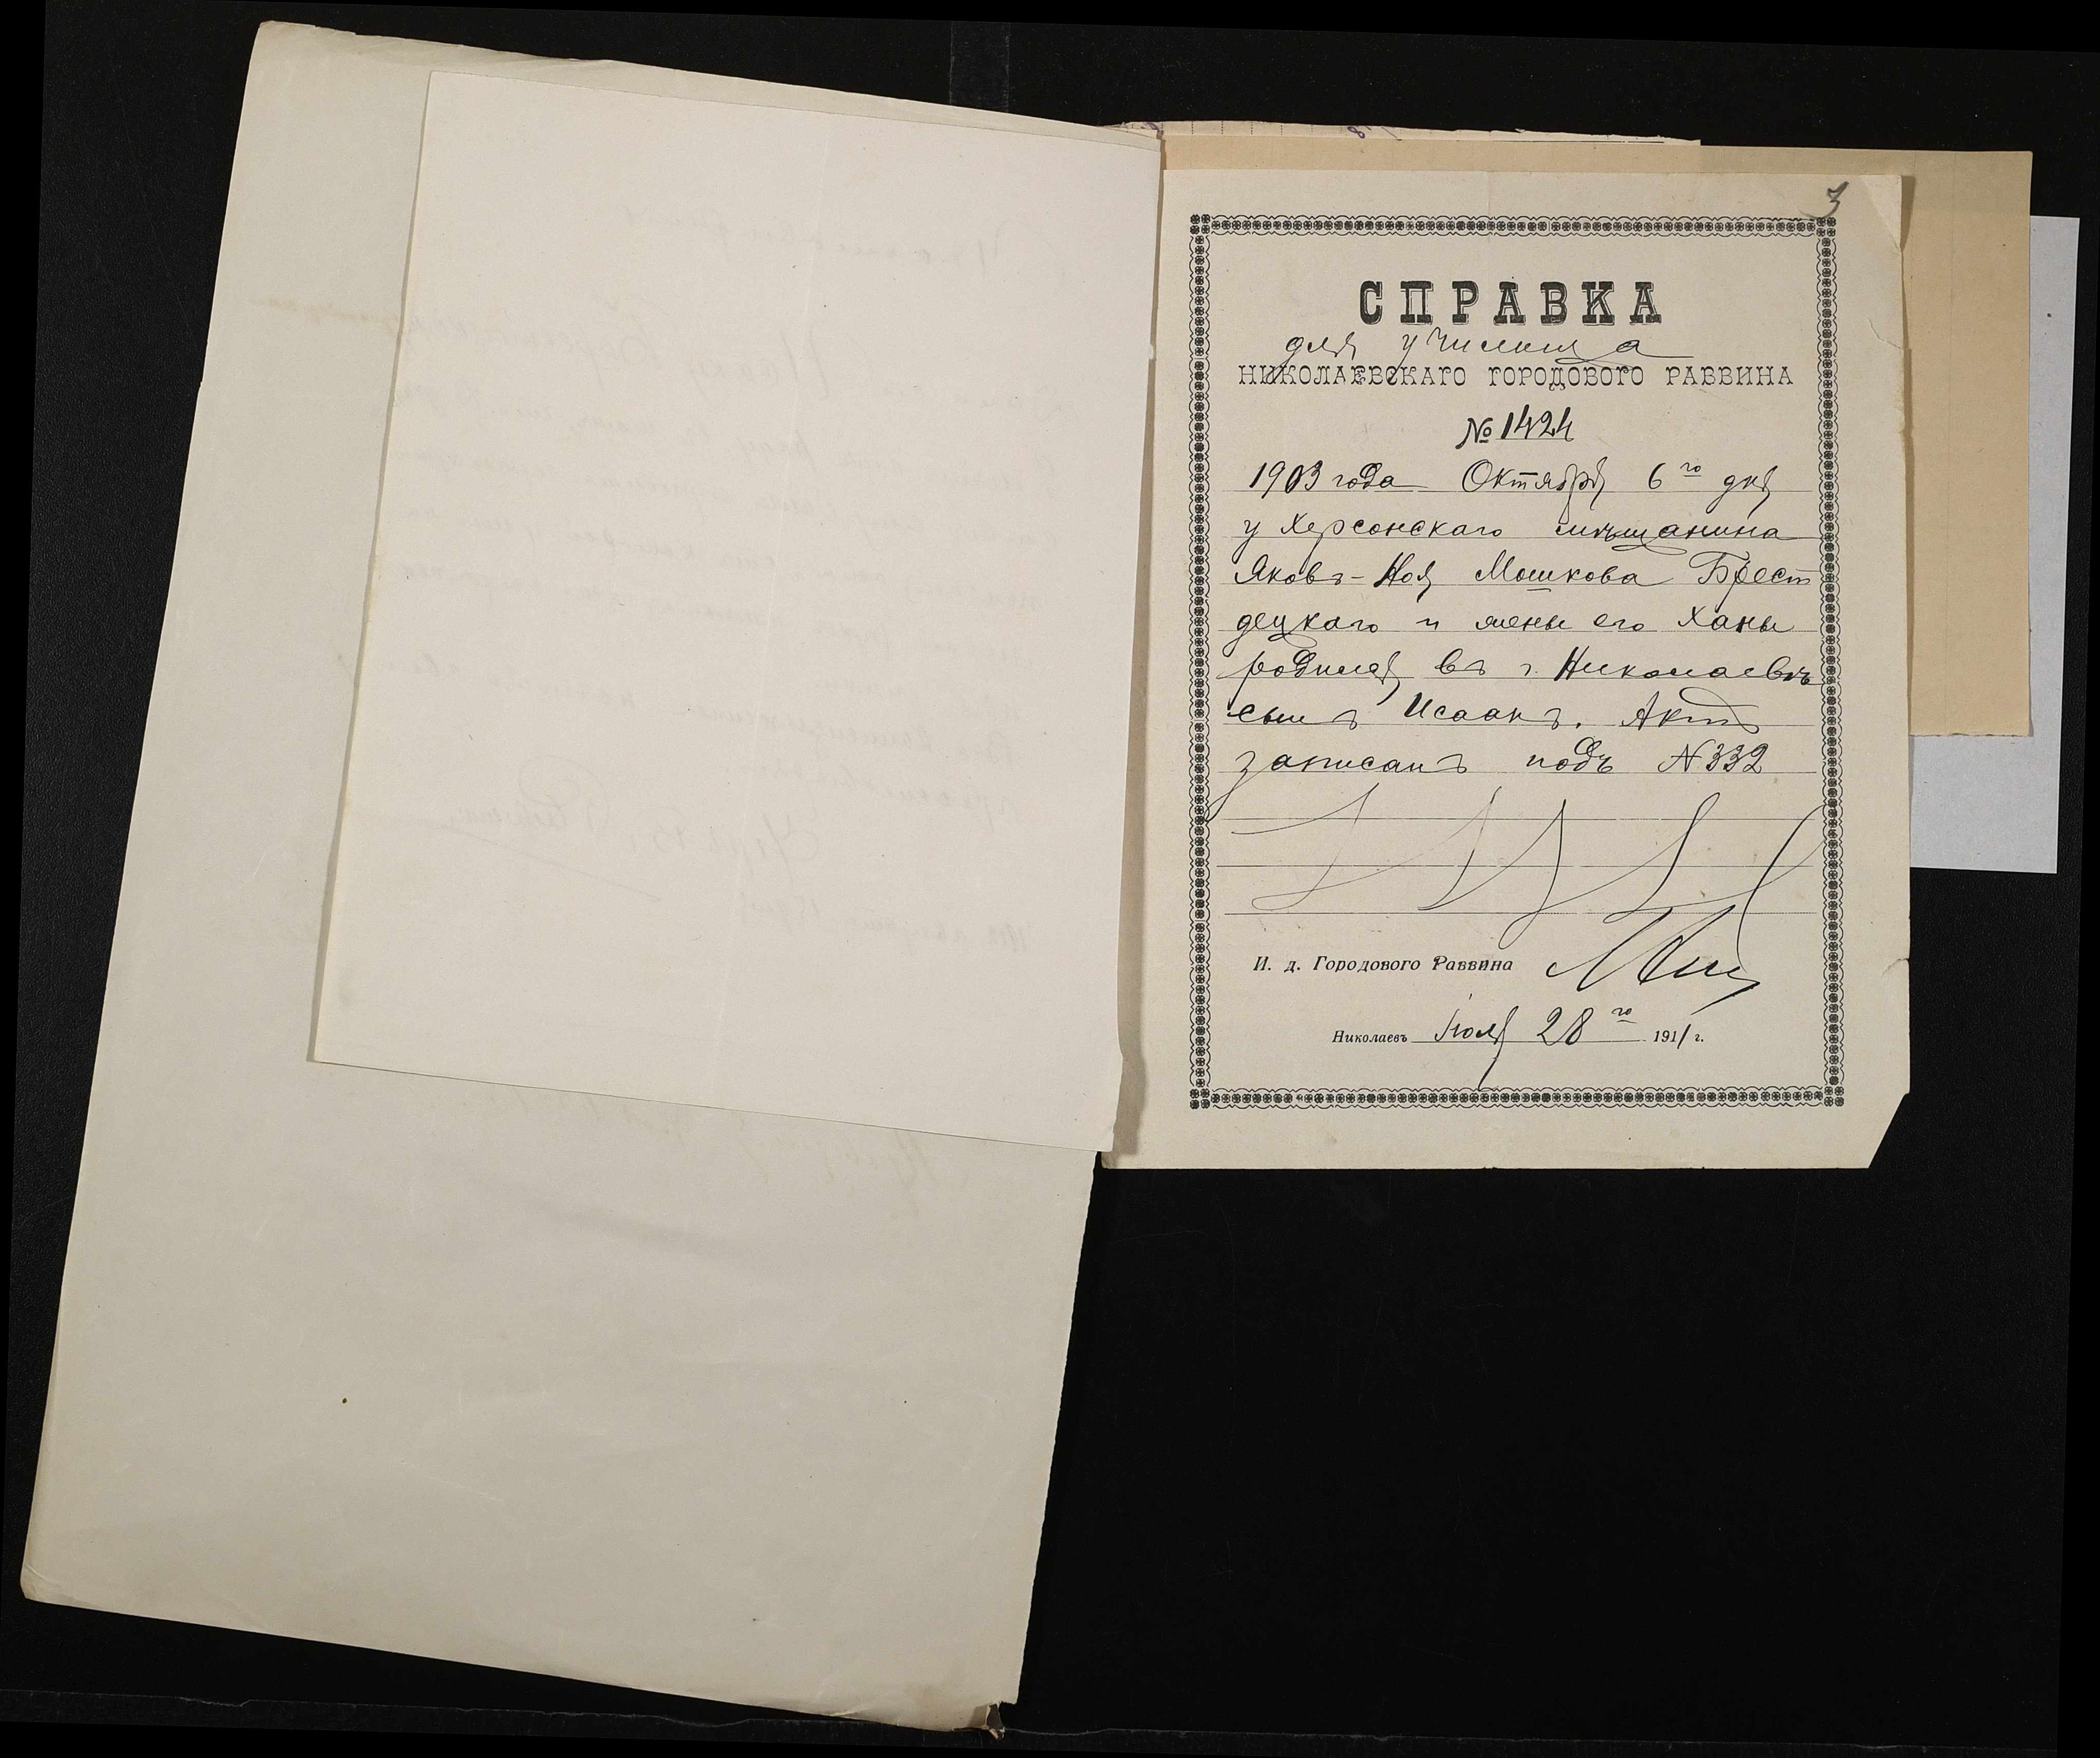 3
СПРАВКА
для училища
НИКОЛАЕВСКАГО ГОРОДОВОГО РАВВИНА
№ 1424
1903 года Октября 6го дня
у Херсонскаго мѣщанина
Яковъ-Ноя Мошкова Брест
децкаго и жены его Ханы
родился въ г. Николаевѣ
сынъ Исаакъ. Актъ
записанъ подъ N 332
И. д. Городового Раввина
Николаевъ Іюля 28го 1911 г.